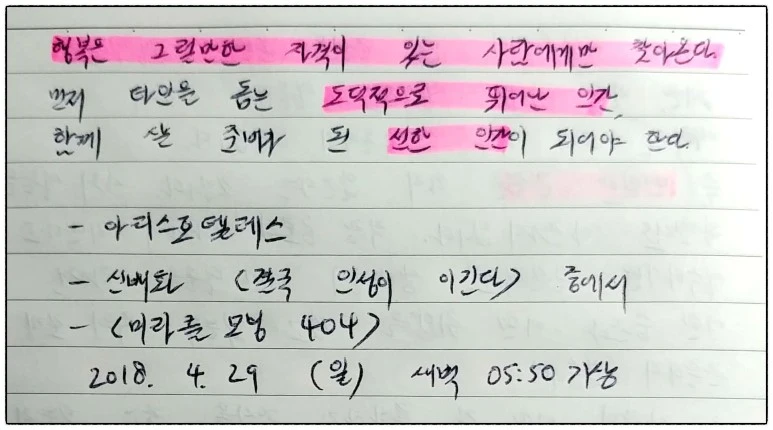 행복은 그럴만한 자격이 있는 사람에게만 찾아온다.
먼저 타인을 돕는 도덕적으로 뛰어난 인간,
함께 살 준비가 된 선한 인간이 되어야 한다.
- 아리스토텔레스
- 신배화 <결국 인성이 이긴다> 중에서
- <미라클 모닝 404>
2018. 4. 29 (일) 새벽 05:50 기상